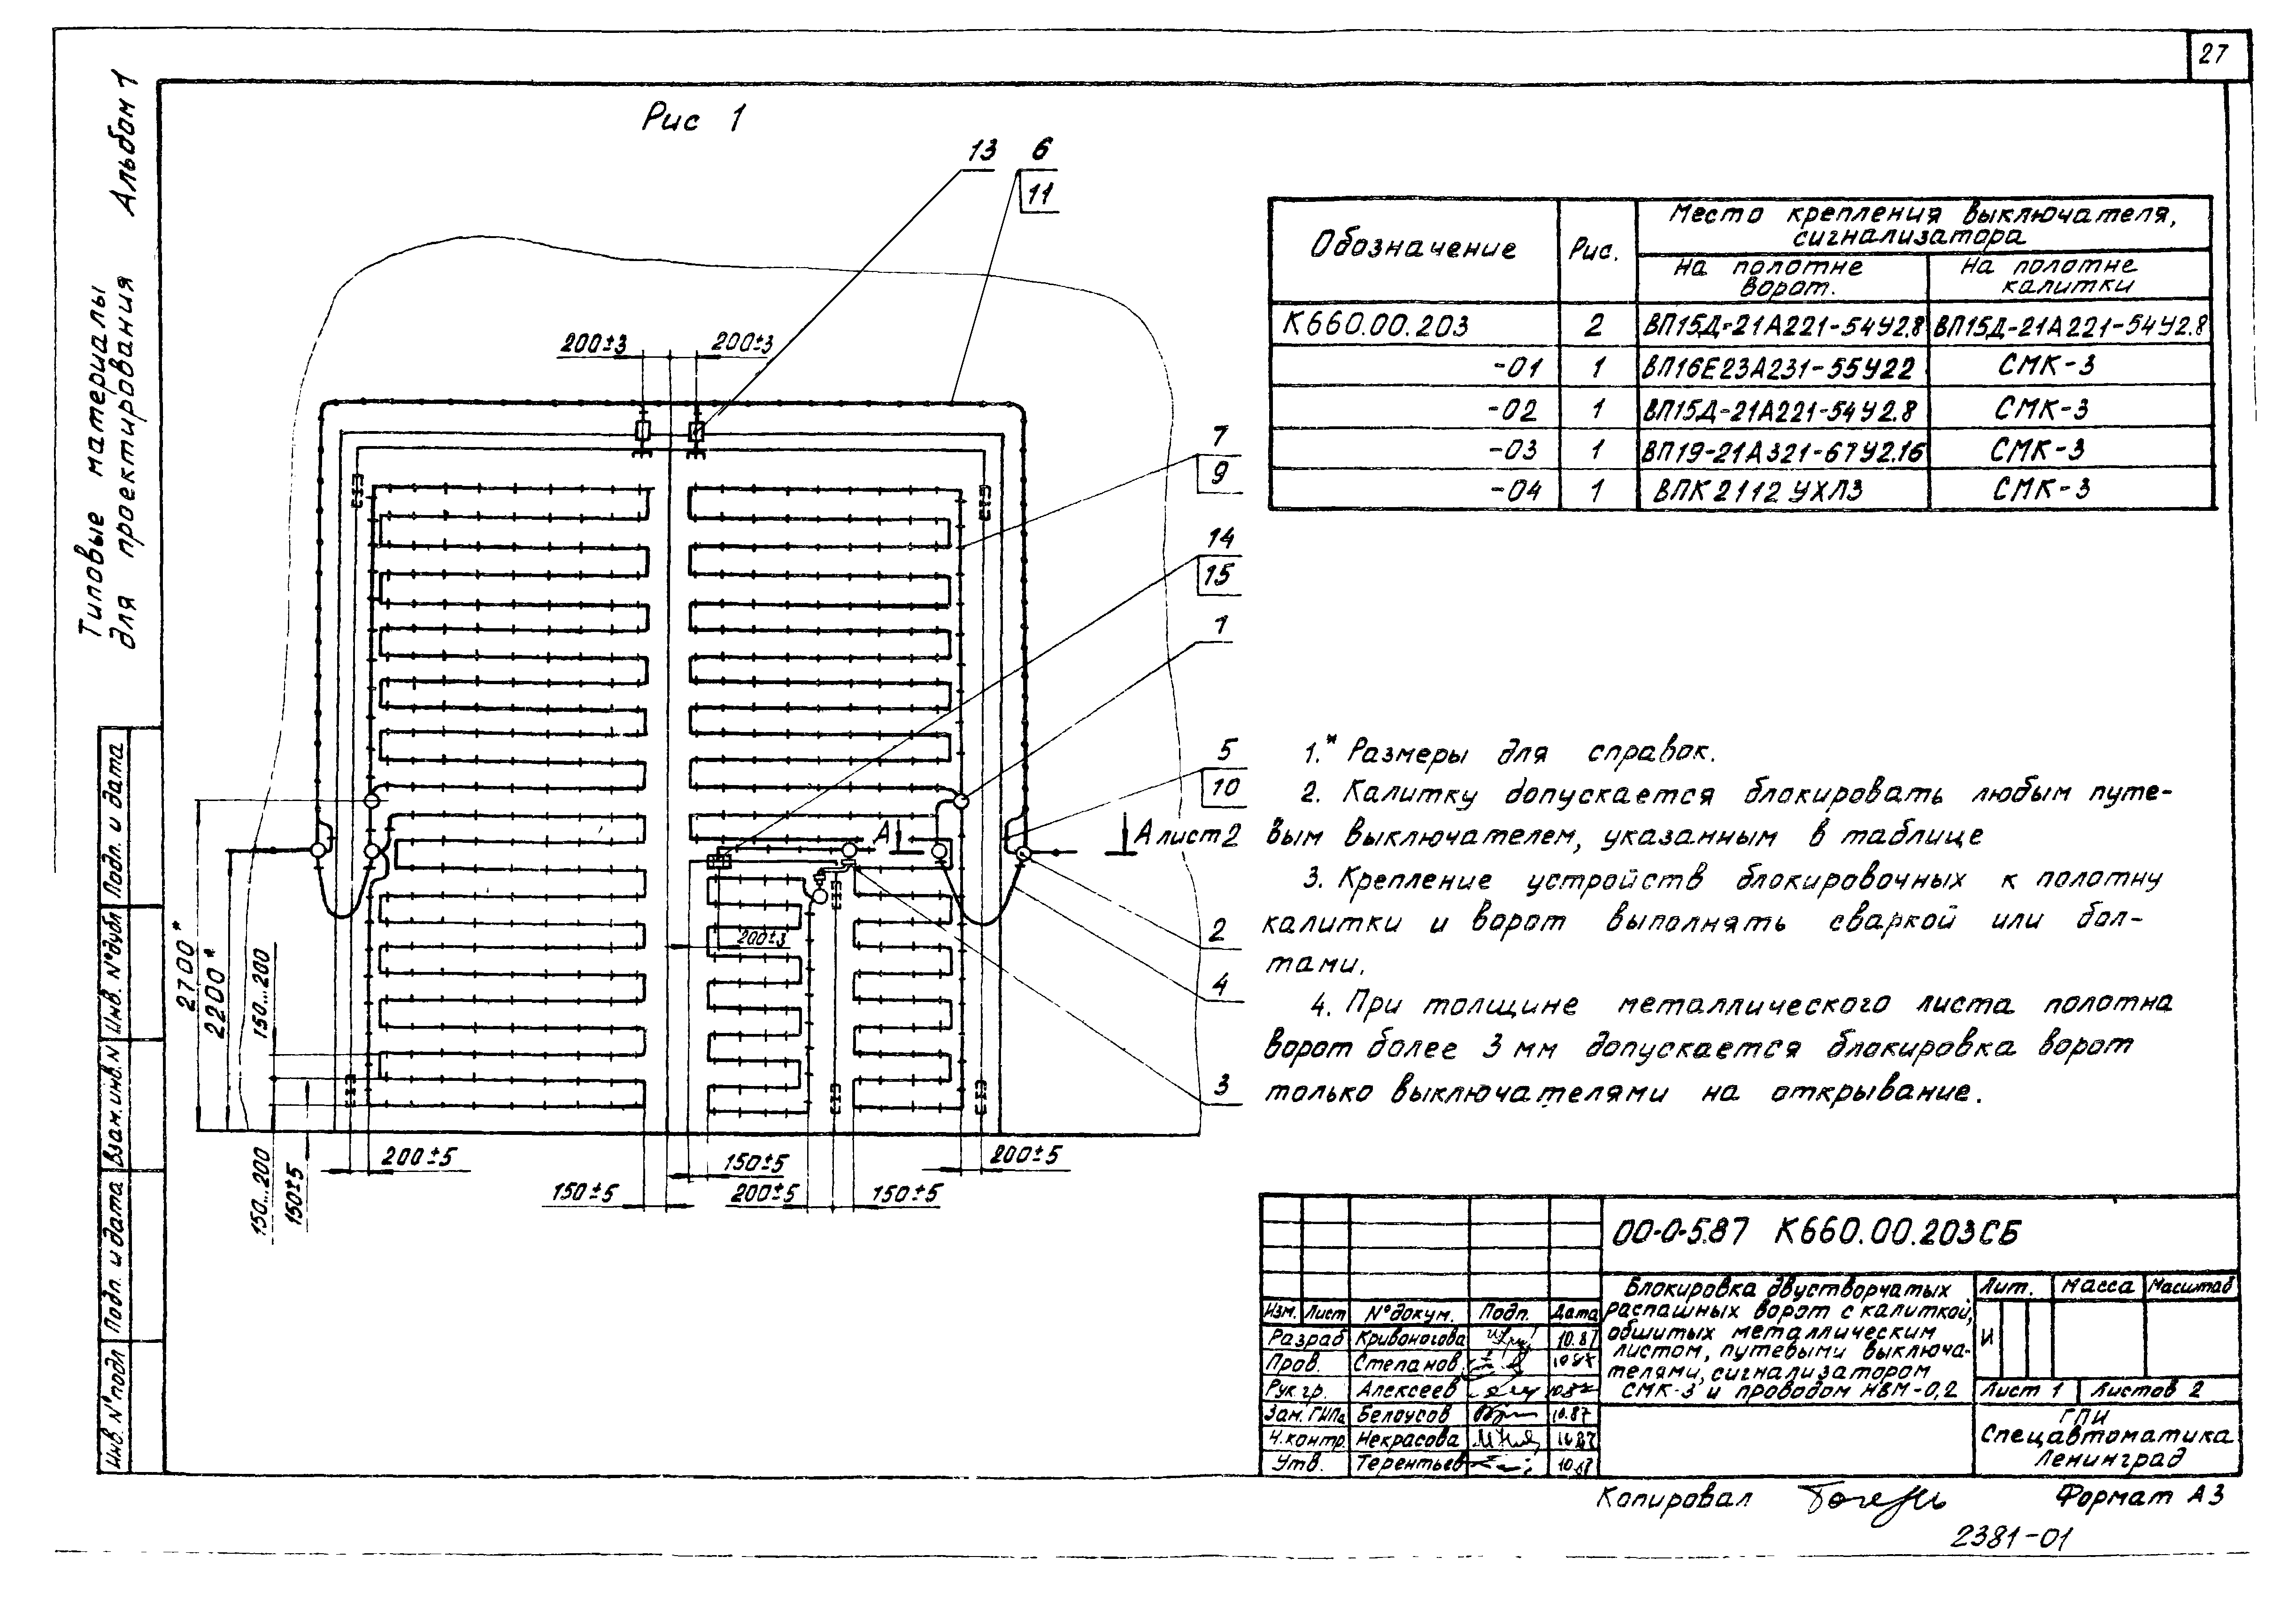 27
Типовые материалы
для проектирования
Альбом 1
Рис 1
13
6
11
200±3
200±3
7
9
14
15
1
5
10
А
А лист 2
2
4
3
2700*
2200*
150...200
200±3
150...200
150±5
200±5
150±5
150±5
200±5
150±5
200±5
Обозначение
Рис.
Место крепления выключателя,
сигнализатора
На полотне
ворот.
На полотне
калитки
К660.00.203 2 ВП15Д-21А221-54У2.8 ВП15Д-21А221-54У2.8
-01 1 ВП16Е23А231-55У22 СМК-3
-02 1 ВП15Д-21А221-54У2.8 СМК-3
-03 1 ВП19-21А321-67У2.16 СМК-3
-04 1 ВПК2112УХЛ3 СМК-3
1.* Размеры для справок.
2. Калитку допускается блокировать любым путе-
вым выключателем, указанным в таблице
3. Крепление устройств блокировочных к полотну
калитки и ворот выполнять сваркой или бол-
тами.
4. При толщине металлического листа полотна
ворот более 3 мм допускается блокировка ворот
только выключателями на открывание.
Подп. и дата
Инв. №дубл
Взам.инв.N
Подп. и дата
Инв. №подл
00-0-5.87 К660.00.203СБ
Блокировка двустворчатых
распашных ворот с калиткой,
обшитых металлическим
листом, путевыми выключа-
телями, сигнализатором
СМК-3 и проводом НВМ-0,2
Лит. Масса Масштаб
И
Лист 1 Листов 2
ГПИ
Спецавтоматика
Ленинград
Изм. Лист №докум. Подп. Дата
Разраб Кривоногова 10.87
Пров. Степанов 10.87
Рук.гр. Алексеев 10.87
Зам.ГИПа Белоусов 10.87
Н.контр. Некрасова 10.87
Утв. Терентьев 10.87
Копировал
Формат А3
2381-01